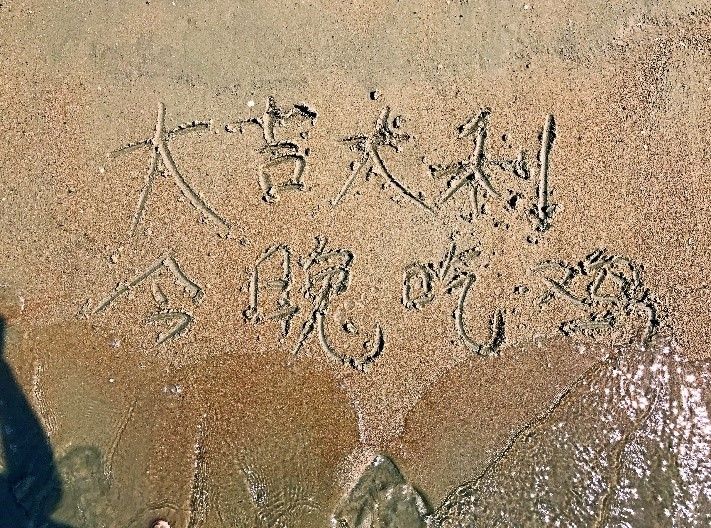 大吉大利
今晚吃鸡